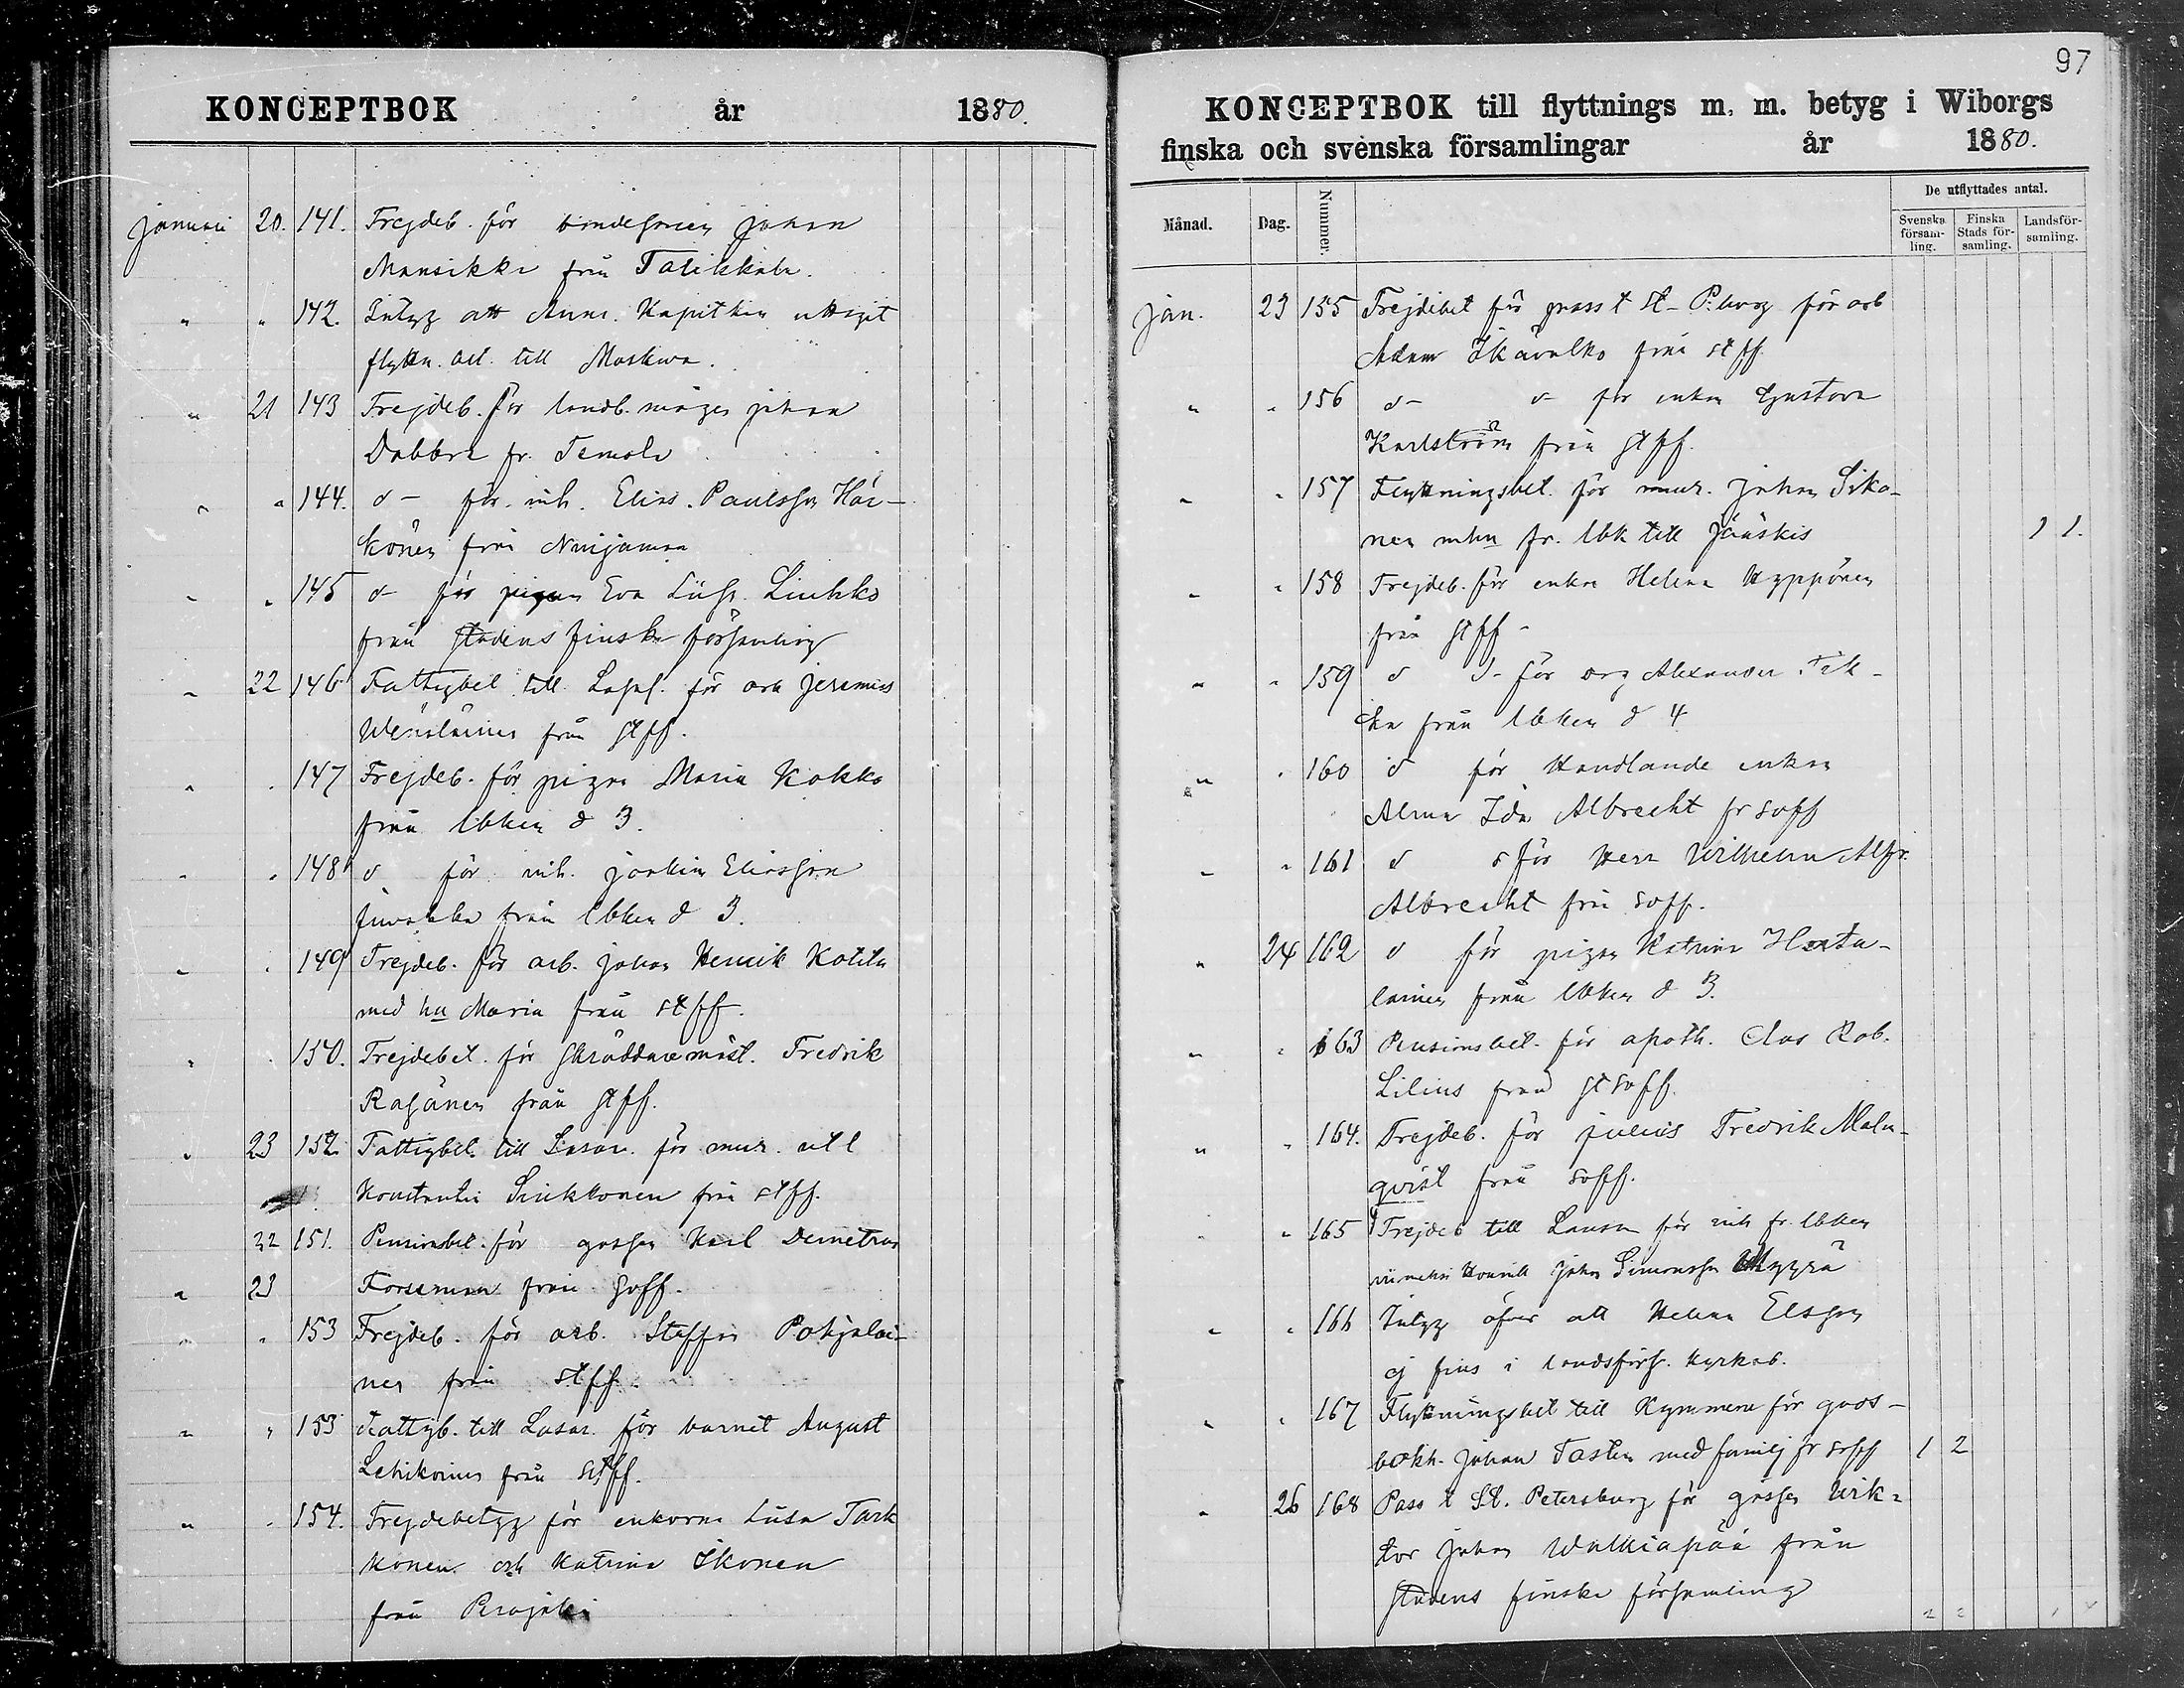 KONCEPTBOK år 1880.
Januari 20. 141. Frejdeb. för bondesonen Johan
Mansikka från Talikkala.
" " 142. Intyg att Anna Kapitkin uttagit
flyttn. bet. till Moskwa.
" 21 143 Frejdeb. för landb. mågen Johan
Dabbra fr. Temola
" " 144. d- för inh. Elias Paulsson Här-
könen från Nuijamaa
" " 145 d- för pigan Eva Liisa Liukko
från stadens finska församling
" 22 146 Fattigbet till Lasar. för arb Jeremias
Wenäläinen från stff.
" " 147 Frejdeb. för pigan Maria Kokko
från lbken d 3.
" " 148 d för inh. Joakim Eliasson
från lbken d 3.
" " 149 Frejdeb. för arb. Johan Henrik Kotila
med hu Maria från stff.
" " 150. Frejdebet. för skräddaremäst. Fredrik
Rasänen från stff.
" 23 152. Fattigbet. till Lasar. för mur.
Konstantin Sinkkonen från stff.
22 151. Pensionsbet. för gossen Karl Demetrius
" 23 Forssman från soff.
" " 153 Frejdeb. för arb. Staffan Pohjalai-
nen från stff.
" " 153 Fattigb. till Lasar. för barnet August
Lehikoinen från stff.
" " 154. Frejdebetyg för enkorna Luisa Tark
konen och Katrina Ikonen
från Pirojoki
97
KONCEPTBOK till flyttnings m. m. betyg i Wiborgs
finska och svenska församlingar år 1880.
Månad. Dag. Nummer. De utflyttades antal.
Svenska församling. Finska Stads församling. Landsförsamling.
Jan. 23 155 Frejdebet för pass t St-P:burg för arb
Adam Ikävalko från stff
" " 156 d- d- för enkan Gustava
Karlström från stff.
" " 157 Flyttningsbet. för mur. Johan Sika-
nen mhu fr. lbk till Jääskis 1 1.
" " 158 Frejdeb. för enkan Helena Hyppönen
från stff-
" " 159 d d- för drg Alexander Pik-
ka från lbken d 4
" " 160 d för Handlande enkan
Alma Ida Albrecht fr soff
" " 161 d d för Herr Wilhelm Alfr.
Albrecht frn soff.
" 24 162 d för pigan Katrina Hata-
lainen från lbken d 3.
" " 163 Pensionsbet. för apoth. Clas Rob.
Lilius från st soff.
" " 164. Frejdeb. för Julius Fredrik Malm-
qvist från soff.
" " 165 Frejdeb till Lausn för inh fr. lbken
Johan Simonsson Myyrä
" " 166 Intyg öfver att Helena Elsgren
ej fins i landsförs. kyrkob.
" " 167 Flyttningsbet till Kymmene för gods-
bokh. Johan Tasten med familj fr soff 1 2
" 26 168 Pass t St. Petersburg för gossen Wik-
tor Johan Walkiapää från
stadens finska församling
2 2 1 1